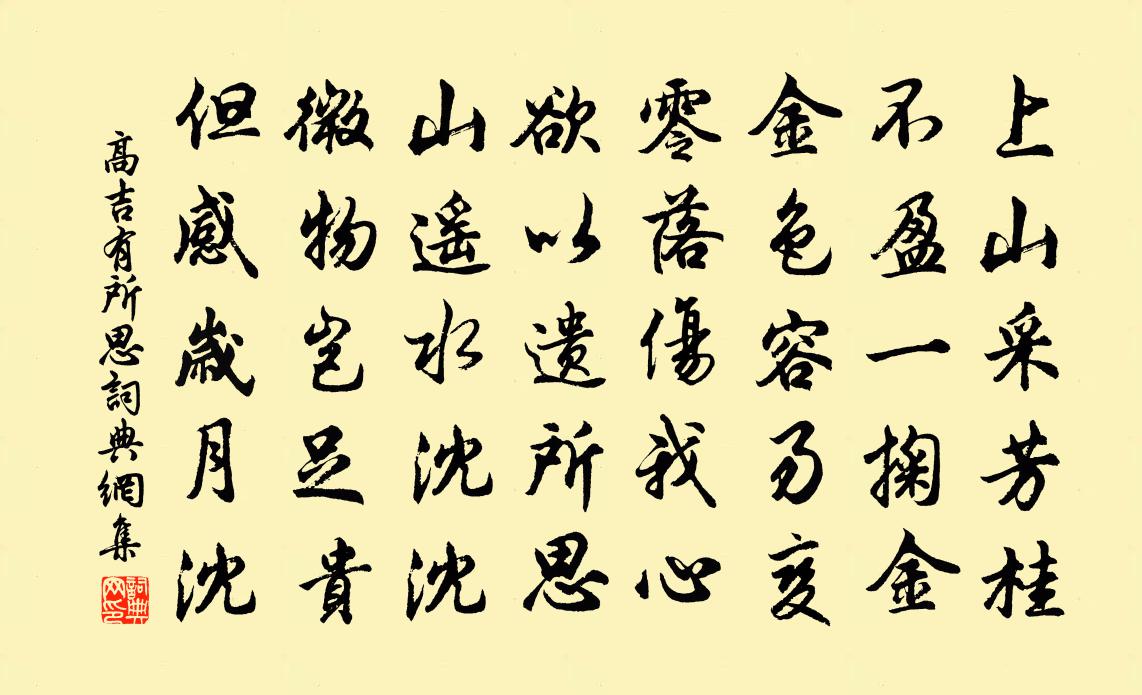 上山采芳桂
不盈一掬金
金色容易变
零落傷我心
欲以遺所思
山遥水沈沈
微物豈足貴
但感歲月沈
高吉有所思詞典網集
詞典网印